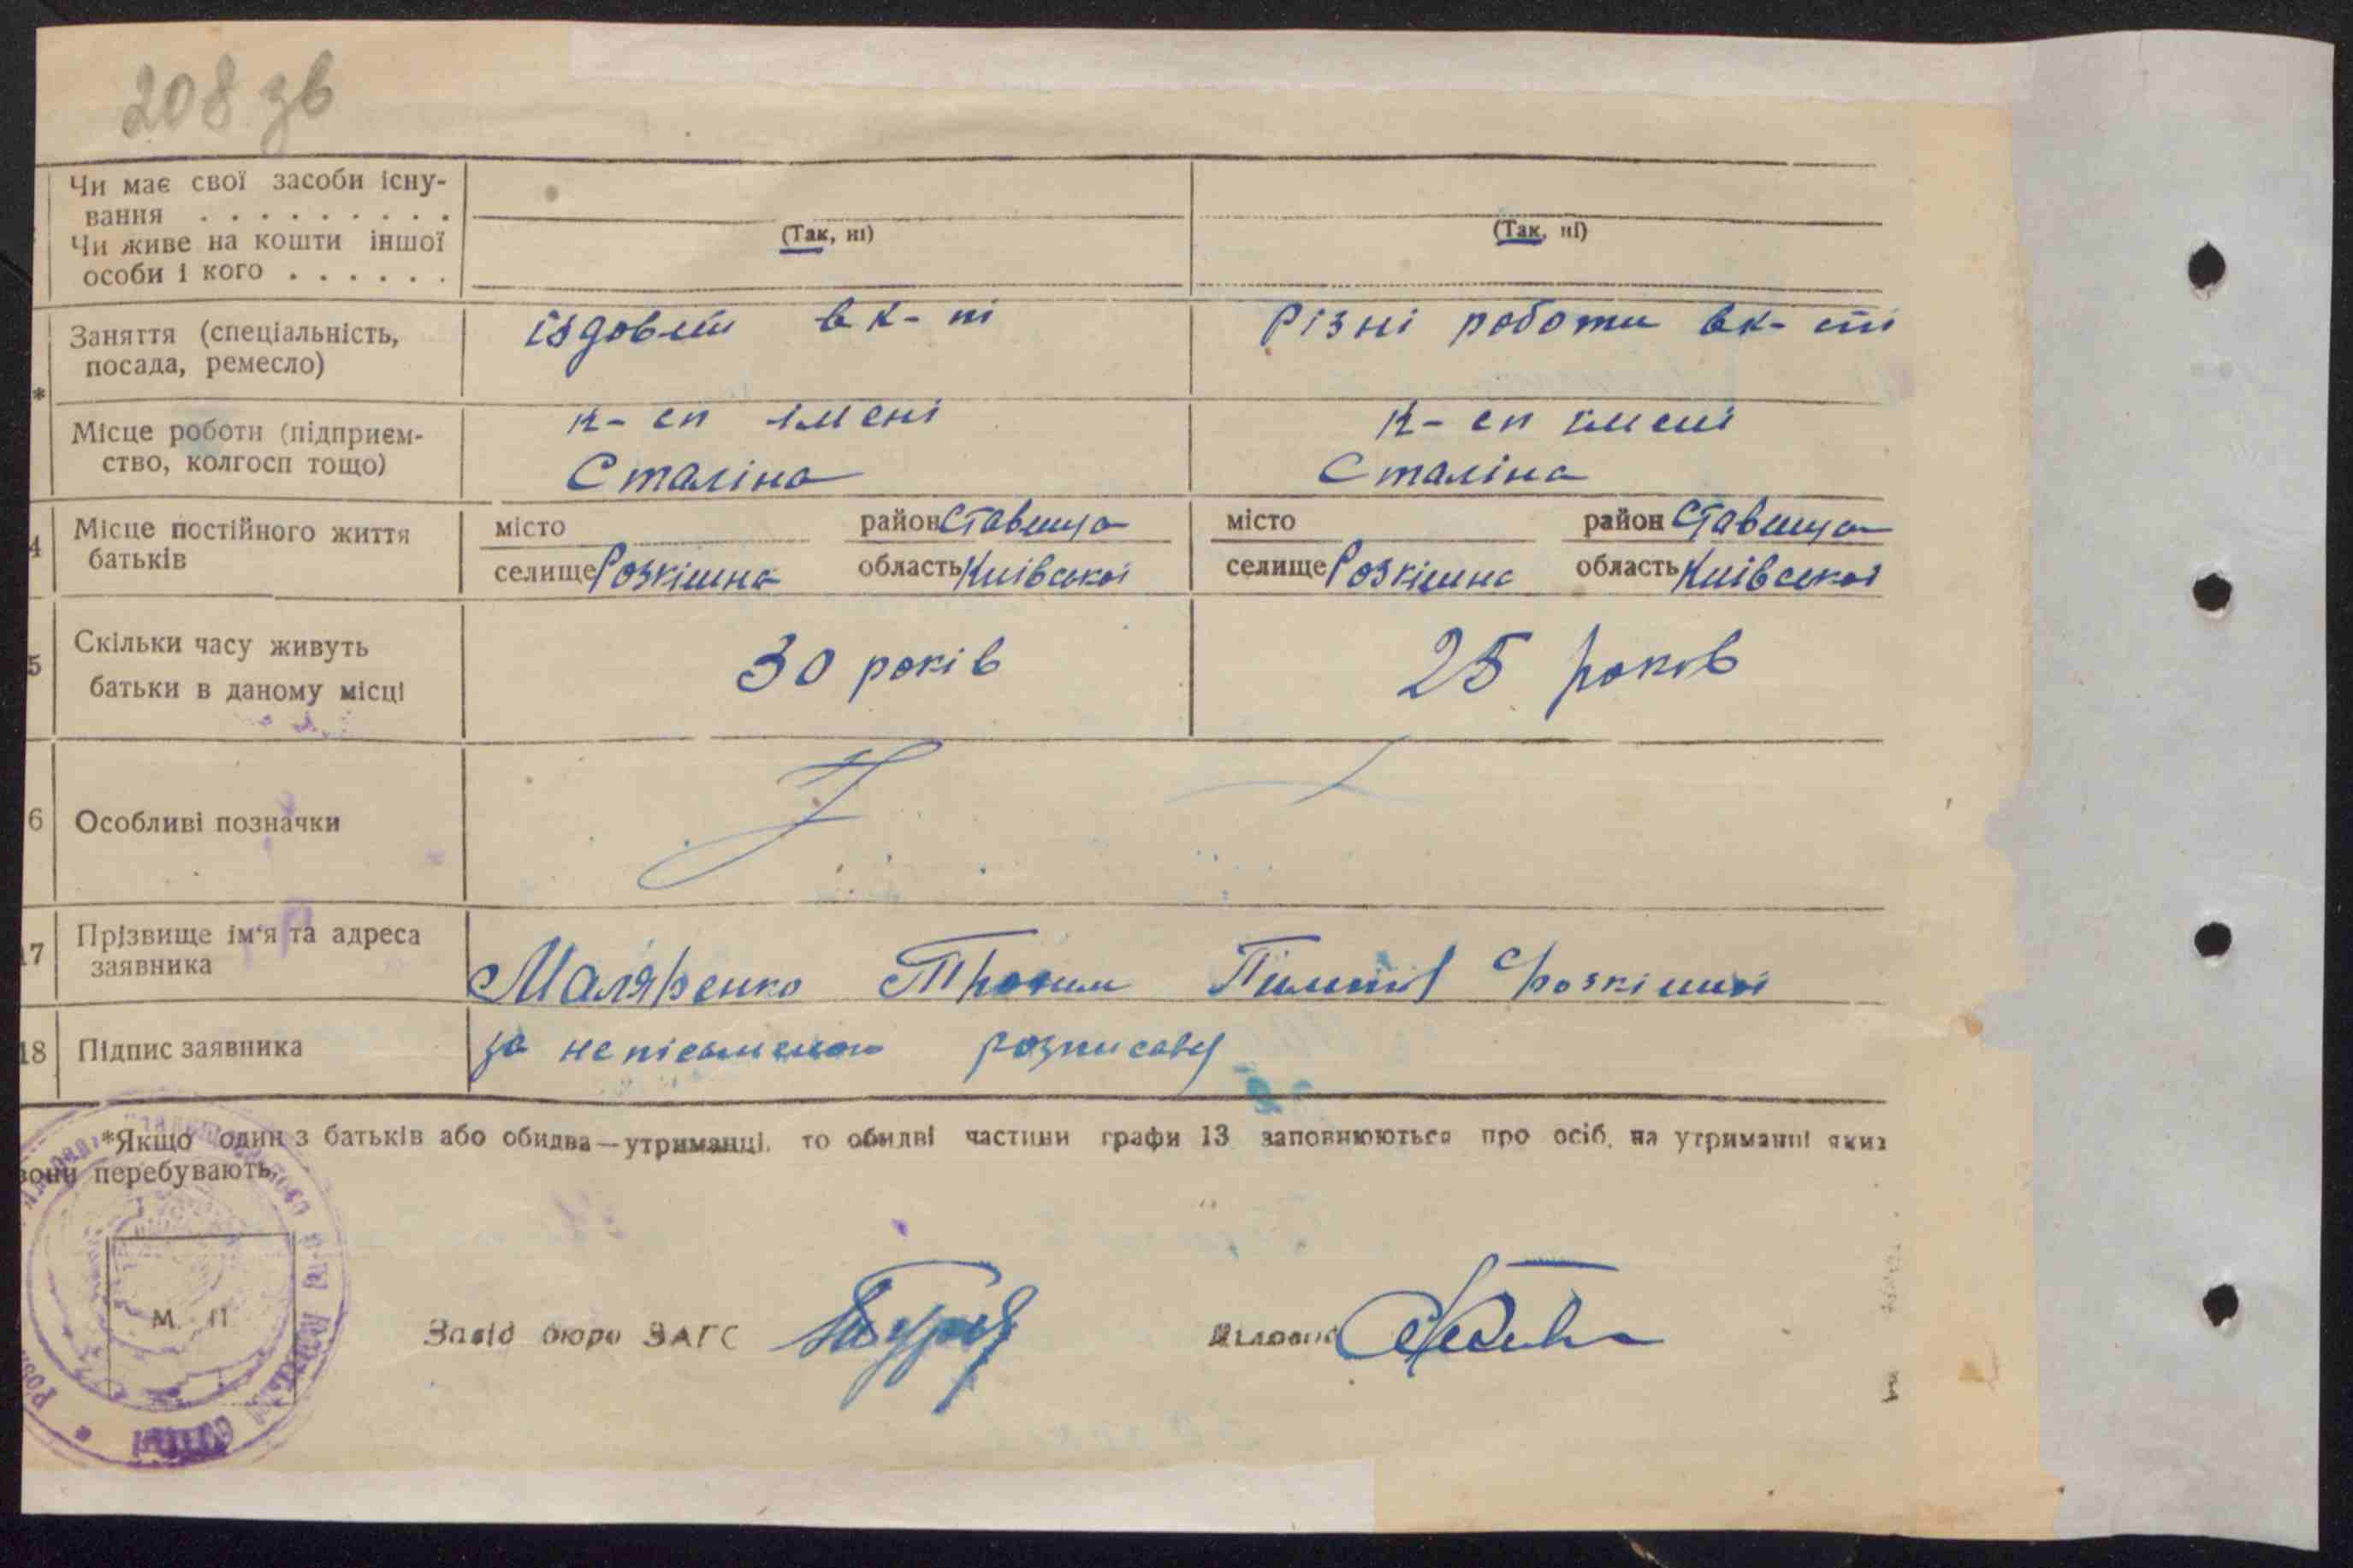 208 зв
Чи має свої засоби існу-
вання . . . . . . . . .
Чи живе на кошти іншої
особи і кого . . . . . .
(Так, ні)
(Так, ні)
*
Заняття (спеціальність,
посада, ремесло)
їздовий в к-пі
Різні роботи в к-пі
Місце роботи (підприєм-
ство, колгосп тощо)
к-сп імені
Сталіна
к-сп імені
Сталіна
4
Місце постійного життя
батьків
місто район Ставища
селище Розкішна область Київської
місто район Ставища
селище Розкішна область Київської
5
Скільки часу живуть
батьки в даному місці
30 років
25 років
6
Особливі позначки
17
Прізвище ім'я та адреса
заявника
Маляренко Трохим
18
Підпис заявника
за неписьменого розписавс
*Якщо один з батьків або обидва—утриманці, то обидві частини графи 13 заповнюються про осіб, на утриманні яких
вони перебувають.
М. П
Завід бюро ЗАГС
Діловод